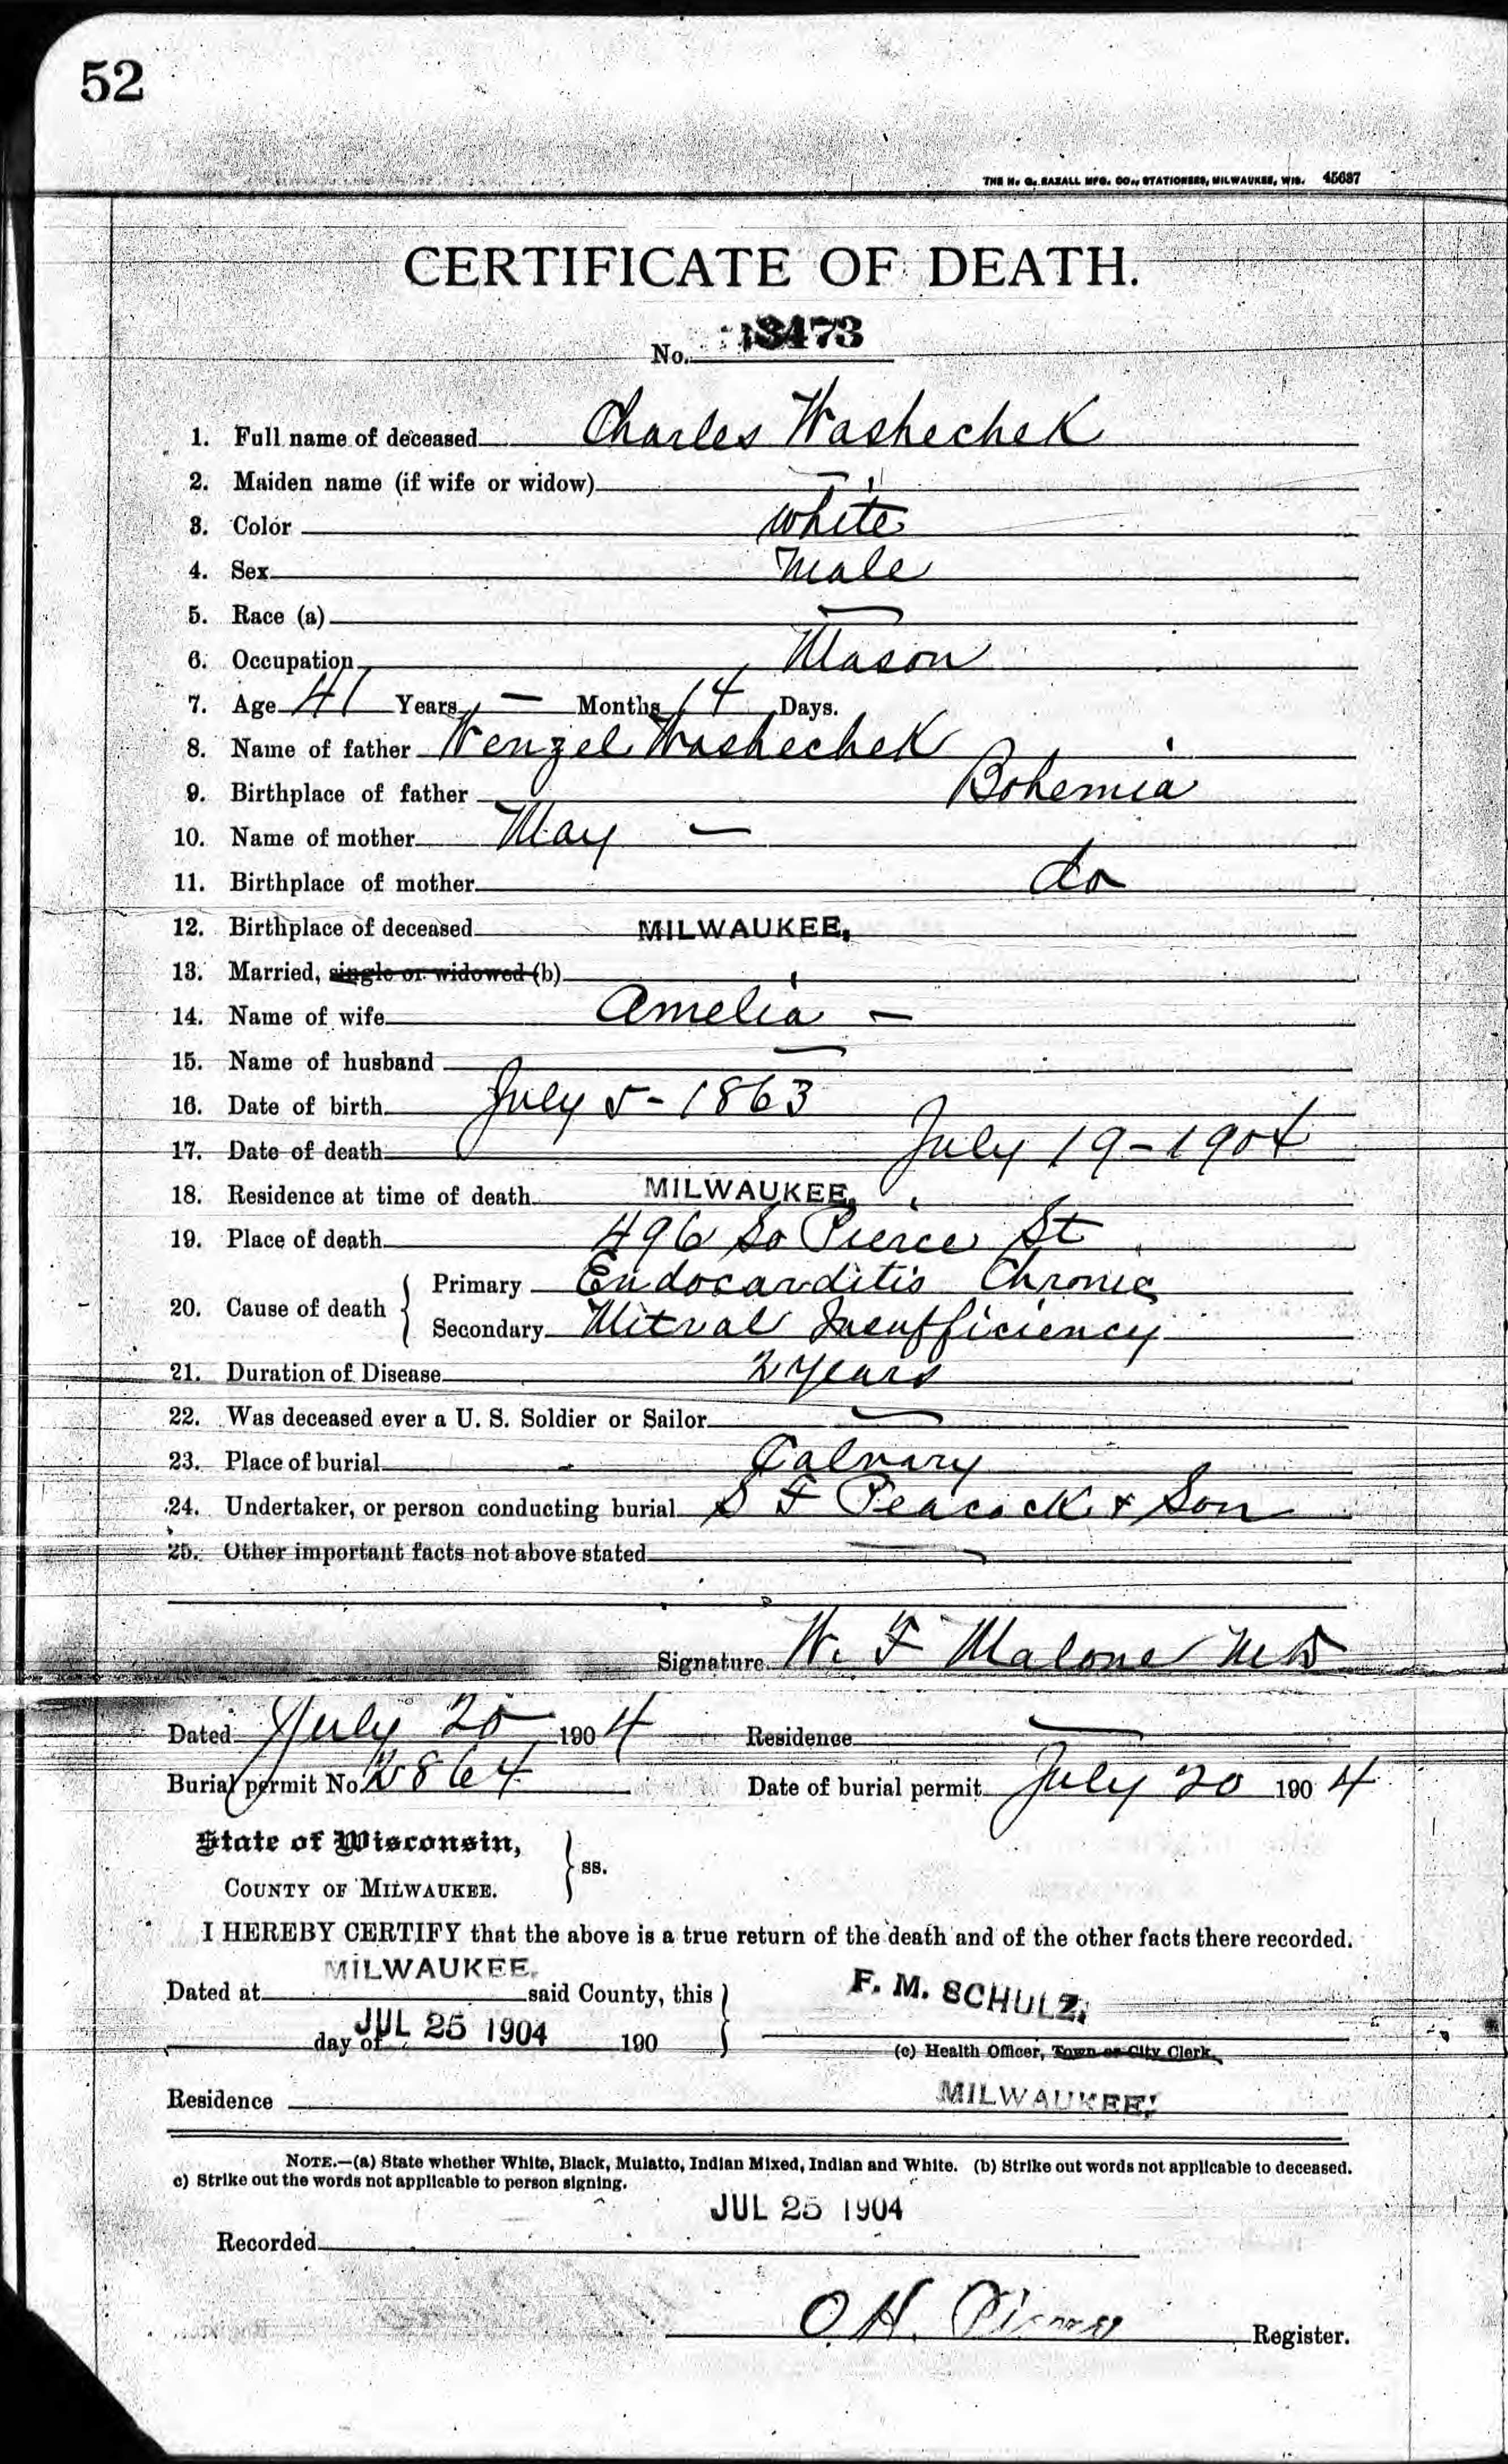 52
THE H. G. RAZALL MFG. CO., STATIONERS, MILWAUKEE, WIS. 45687
CERTIFICATE OF DEATH.
No. 3473
1. Full name of deceased Charles Washechek
2. Maiden name (if wife or widow) —
3. Color white
4. Sex Male
5. Race (a) —
6. Occupation Mason
7. Age 41 Years — Months 14 Days.
8. Name of father Wenzel Washechek
9. Birthplace of father Bohemia
10. Name of mother May —
11. Birthplace of mother do
12. Birthplace of deceased MILWAUKEE,
13. Married, single or widowed (b)
14. Name of wife Amelia —
15. Name of husband —
16. Date of birth July 5 - 1863
17. Date of death July 19 - 1904
18. Residence at time of death MILWAUKEE,
19. Place of death 496 So Pierce St
20. Cause of death { Primary Endocarditis Chronic
Secondary Mitral Insufficiency
21. Duration of Disease 2 years
22. Was deceased ever a U. S. Soldier or Sailor —
23. Place of burial Calvary
24. Undertaker, or person conducting burial S F Peacock & Son
25. Other important facts not above stated —
Signature W. F Malone MD
Dated July 20 1904 Residence —
Burial permit No. 2864 Date of burial permit July 20 1904
State of Wisconsin,
COUNTY OF MILWAUKEE. } ss.
I HEREBY CERTIFY that the above is a true return of the death and of the other facts there recorded.
Dated at MILWAUKEE. said County, this } F. M. SCHULZ,
day of JUL 25 1904 190
(c) Health Officer, Town or City Clerk.
Residence MILWAUKEE.
NOTE.—(a) State whether White, Black, Mulatto, Indian Mixed, Indian and White. (b) Strike out words not applicable to deceased.
c) Strike out the words not applicable to person signing.
JUL 25 1904
Recorded
O. H. Register.